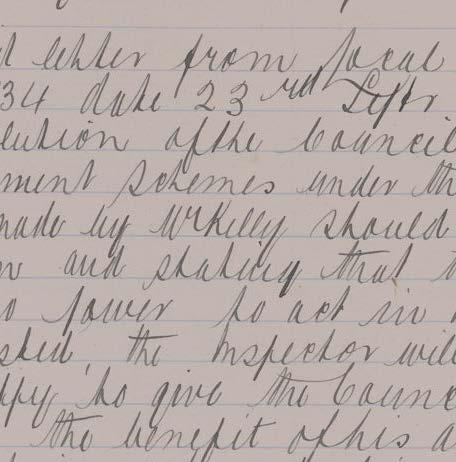 letter from local
34 date 23rd Septr
lution of the Council
ment schemes under th
made by Mr Kelly should
and stating that t
o power to act in
sted, the Inspector will
ppy to give the Counc
the benefit of his a